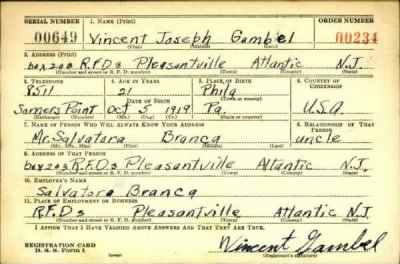 SERIAL NUMBER 1. NAME (Print) ORDER NUMBER
00649 Vincent Joseph Gambel 00234
(First) (Middle) (Last)
2. ADDRESS (Print)
box 203 R.F.D3 Pleasantville Atlantic N.J.
(Number and street or R. F. D. number) (Town) (County) (State)
3. TELEPHONE 4. AGE IN YEARS 5. PLACE OF BIRTH 6. COUNTRY OF CITIZENSHIP
8511 21 Phila
DATE OF BIRTH (Town or county)
Somers Point Oct 5 1919 Pa. U.S.A.
(Exchange) (Number) (Mo.) (Day) (Yr.) (State or country)
7. NAME OF PERSON WHO WILL ALWAYS KNOW YOUR ADDRESS 8. RELATIONSHIP OF THAT PERSON
Mr. Salvatora Branca uncle
(Mr., Mrs., Miss) (First) (Middle) (Last)
9. ADDRESS OF THAT PERSON
box 203 R.F.D3 Pleasantville Atlantic N.J.
(Number and street or R. F. D. number) (Town) (County) (State)
10. EMPLOYER'S NAME
Salvatora Branca
11. PLACE OF EMPLOYMENT OR BUSINESS
R.F.D3 Pleasantville Atlantic N.J.
(Number and street or R. F. D. number) (Town) (County) (State)
I AFFIRM THAT I HAVE VERIFIED ABOVE ANSWERS AND THAT THEY ARE TRUE.
REGISTRATION CARD
D. S. S. Form 1 Vincent Gambel
(Registrant's signature)